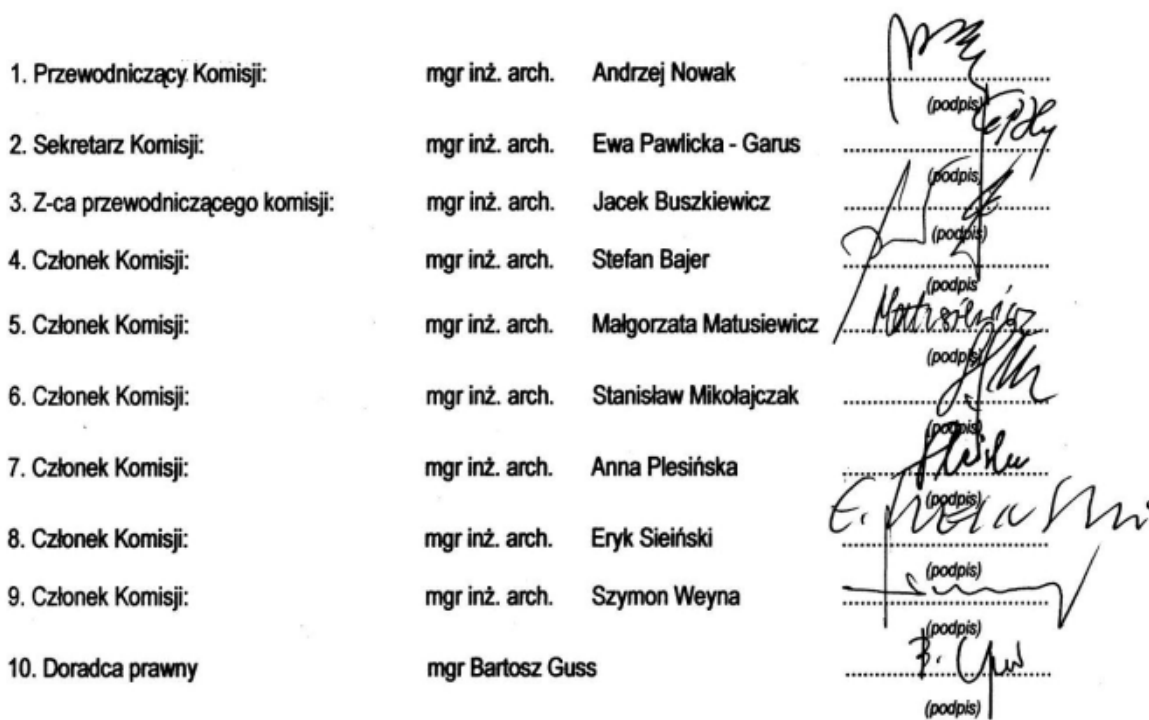 1. Przewodniczący Komisji: mgr inż. arch. Andrzej Nowak ........................
(podpis)
2. Sekretarz Komisji: mgr inż. arch. Ewa Pawlicka - Garus ........................
(podpis)
3. Z-ca przewodniczącego komisji: mgr inż. arch. Jacek Buszkiewicz ........................
(podpis)
4. Członek Komisji: mgr inż. arch. Stefan Bajer ........................
(podpis
5. Członek Komisji: mgr inż. arch. Małgorzata Matusiewicz Matusiewicz
(podpis)
6. Członek Komisji: mgr inż. arch. Stanisław Mikołajczak ........................
(podpis)
7. Członek Komisji: mgr inż. arch. Anna Plesińska ........................
(podpis)
8. Członek Komisji: mgr inż. arch. Eryk Sieiński ........................
(podpis)
9. Członek Komisji: mgr inż. arch. Szymon Weyna ........................
(podpis)
10. Doradca prawny mgr Bartosz Guss ........................
(podpis)